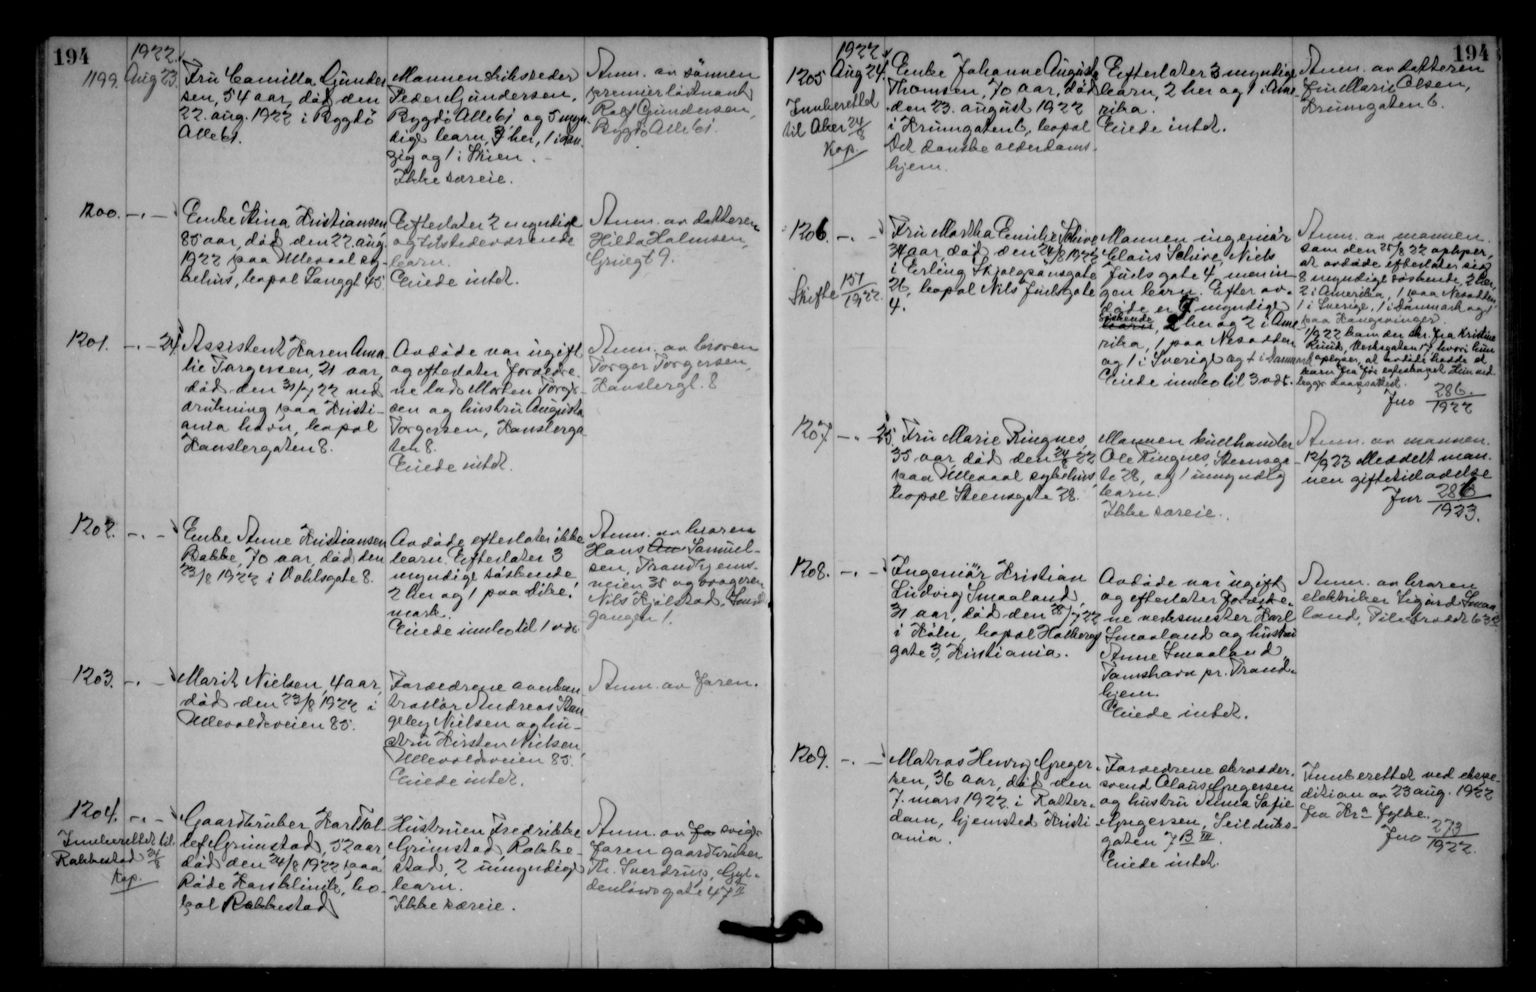 194
1922
1199. Aug 23. Fru Camilla Gunder-
sen, 54 aar, död den
22. aug. 1922 i Bygdö
Alle 61.
Mannen skibsreder
Peder Gundersen,
Bygdö Alle 61 og 5 myn-
dige barn, 3 her, 1 i Dan-
zig og 1 i Skien.
Ikke særeie.
Anm. av sönnen
premierlöitnant
Rolf Gundersen,
Bygdö Alle 61.
1200. -.- Enke Stina Kristiansen
85 aar, död den 22. aug.
1922 paa Ullevaal sy-
kehus, bopæl Langgt 45
Efterlater 2 myndige
og tilstedeværende
barn.
Eiede intet.
Anm. av datteren
Hilda Halmsen,
Grüegt 9.
1201. -.- 24. Assistent Karen Ama-
lie Torgersen, 21 aar,
död den 31/7 22 ved
drukning paa Kristi-
ania havn, bopæl
Hauslergaten 8.
Avdöde var ugift
og efterlater foreldre-
ne Morten Torger-
sen og hustru Augusta
Torgersen, Hauslerga-
ten 8.
Eiede intet.
Anm. av broren
Torger Torgersen,
Hauslergt. 8
1202. -.- Enke Anne Kristiansen
Bakke, 70 aar, död den
23/8 1922 i Dahlsgate 8.
Avdöde efterlater ikke
barn. Efterlater 3
myndige söskende,
2 her og 1 paa
Eiede indbo til 1 vdr.
Anm. av broren
Hans Samuel-
sen, Trondhjems-
veien 35 og
Nils Kjölstad,
gangen 1.
1203. -.- Marit Nielsen, 4 aar,
död den 23/8 1922 i
Ullevoldsveien 85.
Forældrene
Andreas
Nielsen og hu-
stru Kirsten Nielsen,
Ullevoldsveien 85.
Eiede intet.
Anm. av faren.
1204. -.- Gaardbruker Karl Tol-
lef Grimstad, 52 aar,
död den 24/8 1922 paa
Röde Kors klinik, bo-
pæl Rakkestad
Innberettet til
Rakkestad 24/8
Kop.
Hustruen Fredrikke
Grimstad, Rakke-
stad, 2 umyndige
barn.
Ikke særeie.
Anm. av sviger-
faren gaardbruker
Th. Sverdrup, Gyl-
denlöves gate 47 II
194
1922
1205 Aug 24. Enke Johanne Auguste
Thomsen, 70 aar, död
den 23. august 1922
i Krumgaten 6, bopæl
Det danske alderdoms-
hjem.
Innberettet
til Aker 24/8
Kop.
Efterlater 3 myndige
barn, 2 her og 1 i Ame-
rika.
Eiede intet.
Anm. av datteren
fru Marie Olsen,
Krumgaten 6.
1206. -.- Fru Martha Emilie Schive
34 aar, död den 24/8 1922
i Erling Skjalgsonsgate
26, bopæl Nils Juels gate
4.
Skifte 151/1922
Mannen ingeniör
Claus Schive, Niels
Juels gate 4, men in-
gen barn. Efter av-
döde er 7 myndige
söskende, 2 her og 2 i Ame-
rika, 1 paa Nesodden
og 1 i Sverige og 1 i Danmark
Eiede innbo til 3 vdr.
Anm. av mannen.
som den 25/8 22 opgir,
at avdöde efterlater sig
8 myndige söskende, 2 her,
2 i Amerika, 1 paa Nesodden,
1 i Sverige, 1 i Danmark og 1
paa Kongsvinger.
Jno 286./1922
1207 -.- 25. Fru Marie Ringnes,
35 aar död den 24/8 22
paa Ullevaal sykehus,
bopæl Steensgate 28.
Mannen kulhandler
Ole Ringnes, Steensga-
te 28, og 1 umyndig
barn.
Ikke særeie.
Anm. av mannen.
12/9 23 Meddelt man-
nen giftetilladelse
Jnr 286/1923.
1208. -.- Ingeniör Kristian
Ludvig Smaaland,
31 aar, död den 28/7 22
i Köln, bopæl Holbergs
gate 3, Kristiania.
Avdöde var ugift
og efterlater foreldre-
ne verksmester Karl
Smaaland og hustru
Anne Smaaland,
Tamshavn pr. Trond-
hjem.
Eiede intet.
Anm. av broren
elektriker Sigurd Smaa-
land, Pilestrædet 63 B
1209. -.- Matros Henry Greger-
sen, 36 aar, död den
7. mars 1922 i Rotter-
dam, hjemsted Kristi-
ania.
Forældrene skrædder-
svend Claus Gregersen
og hustru Anna Sofie
Gregersen, Seilduks-
gaten 7 B III.
Eiede intet.
Innberettet ved ekspe-
dition av 23 aug. 1922
fra Kra Fylke.
Jno 273/1922.